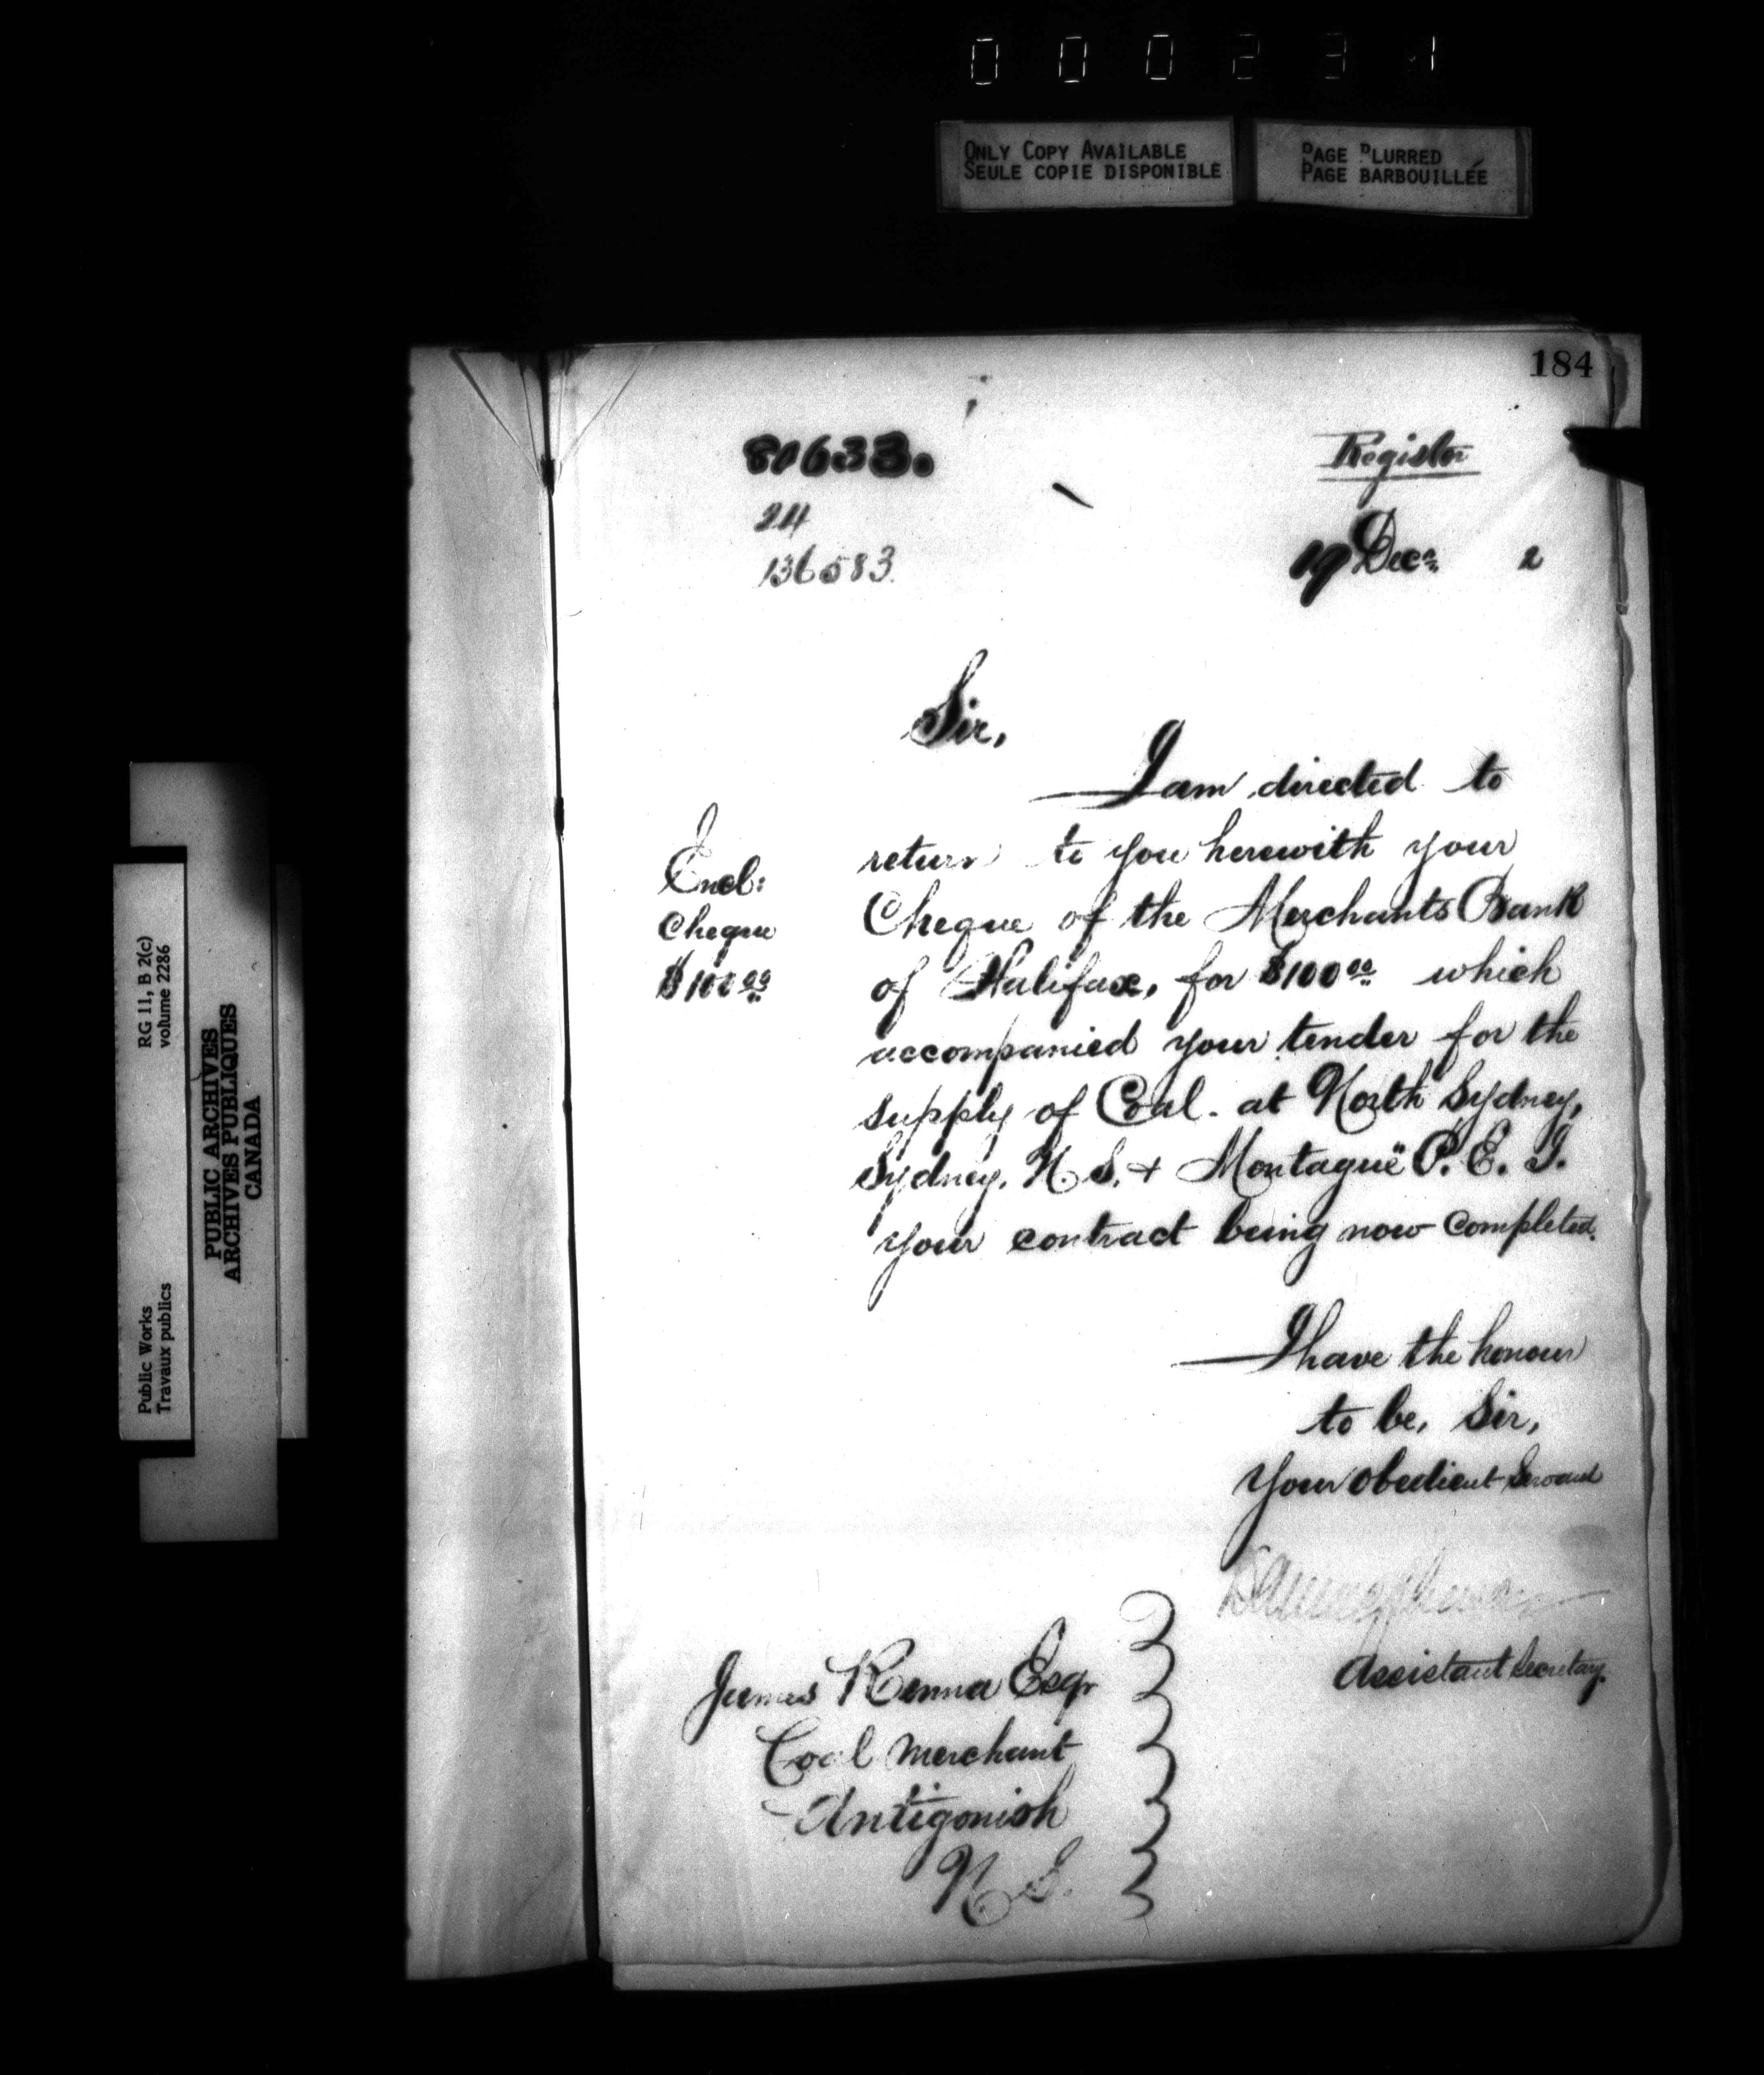 000231
ONLY COPY AVAILABLE
SEULE COPIE DISPONIBLE
PAGE BLURRED
PAGE BARBOUILLÉE
184
80633.
24
136583.
Register
19 Decr. 2
Sir,
I am directed to
return to you herewith your
Cheque of the Merchants Bank
of Halifax, for $100 00 which
accompanied your tender for the
supply of Coal. at North Sydney,
Sydney. N. S. + Montague P. E. I.
your contract being now completed.
Encl:
Cheque
$100 00
I have the honour
to be, Sir,
Your obedient Servant
Assistant Secretary.
James Kenna Esqr
Coal Merchant
Antigonish
N. S.
Public Works
Travaux publics
RG 11, B 2(c)
volume 2286
PUBLIC ARCHIVES
ARCHIVES PUBLIQUES
CANADA